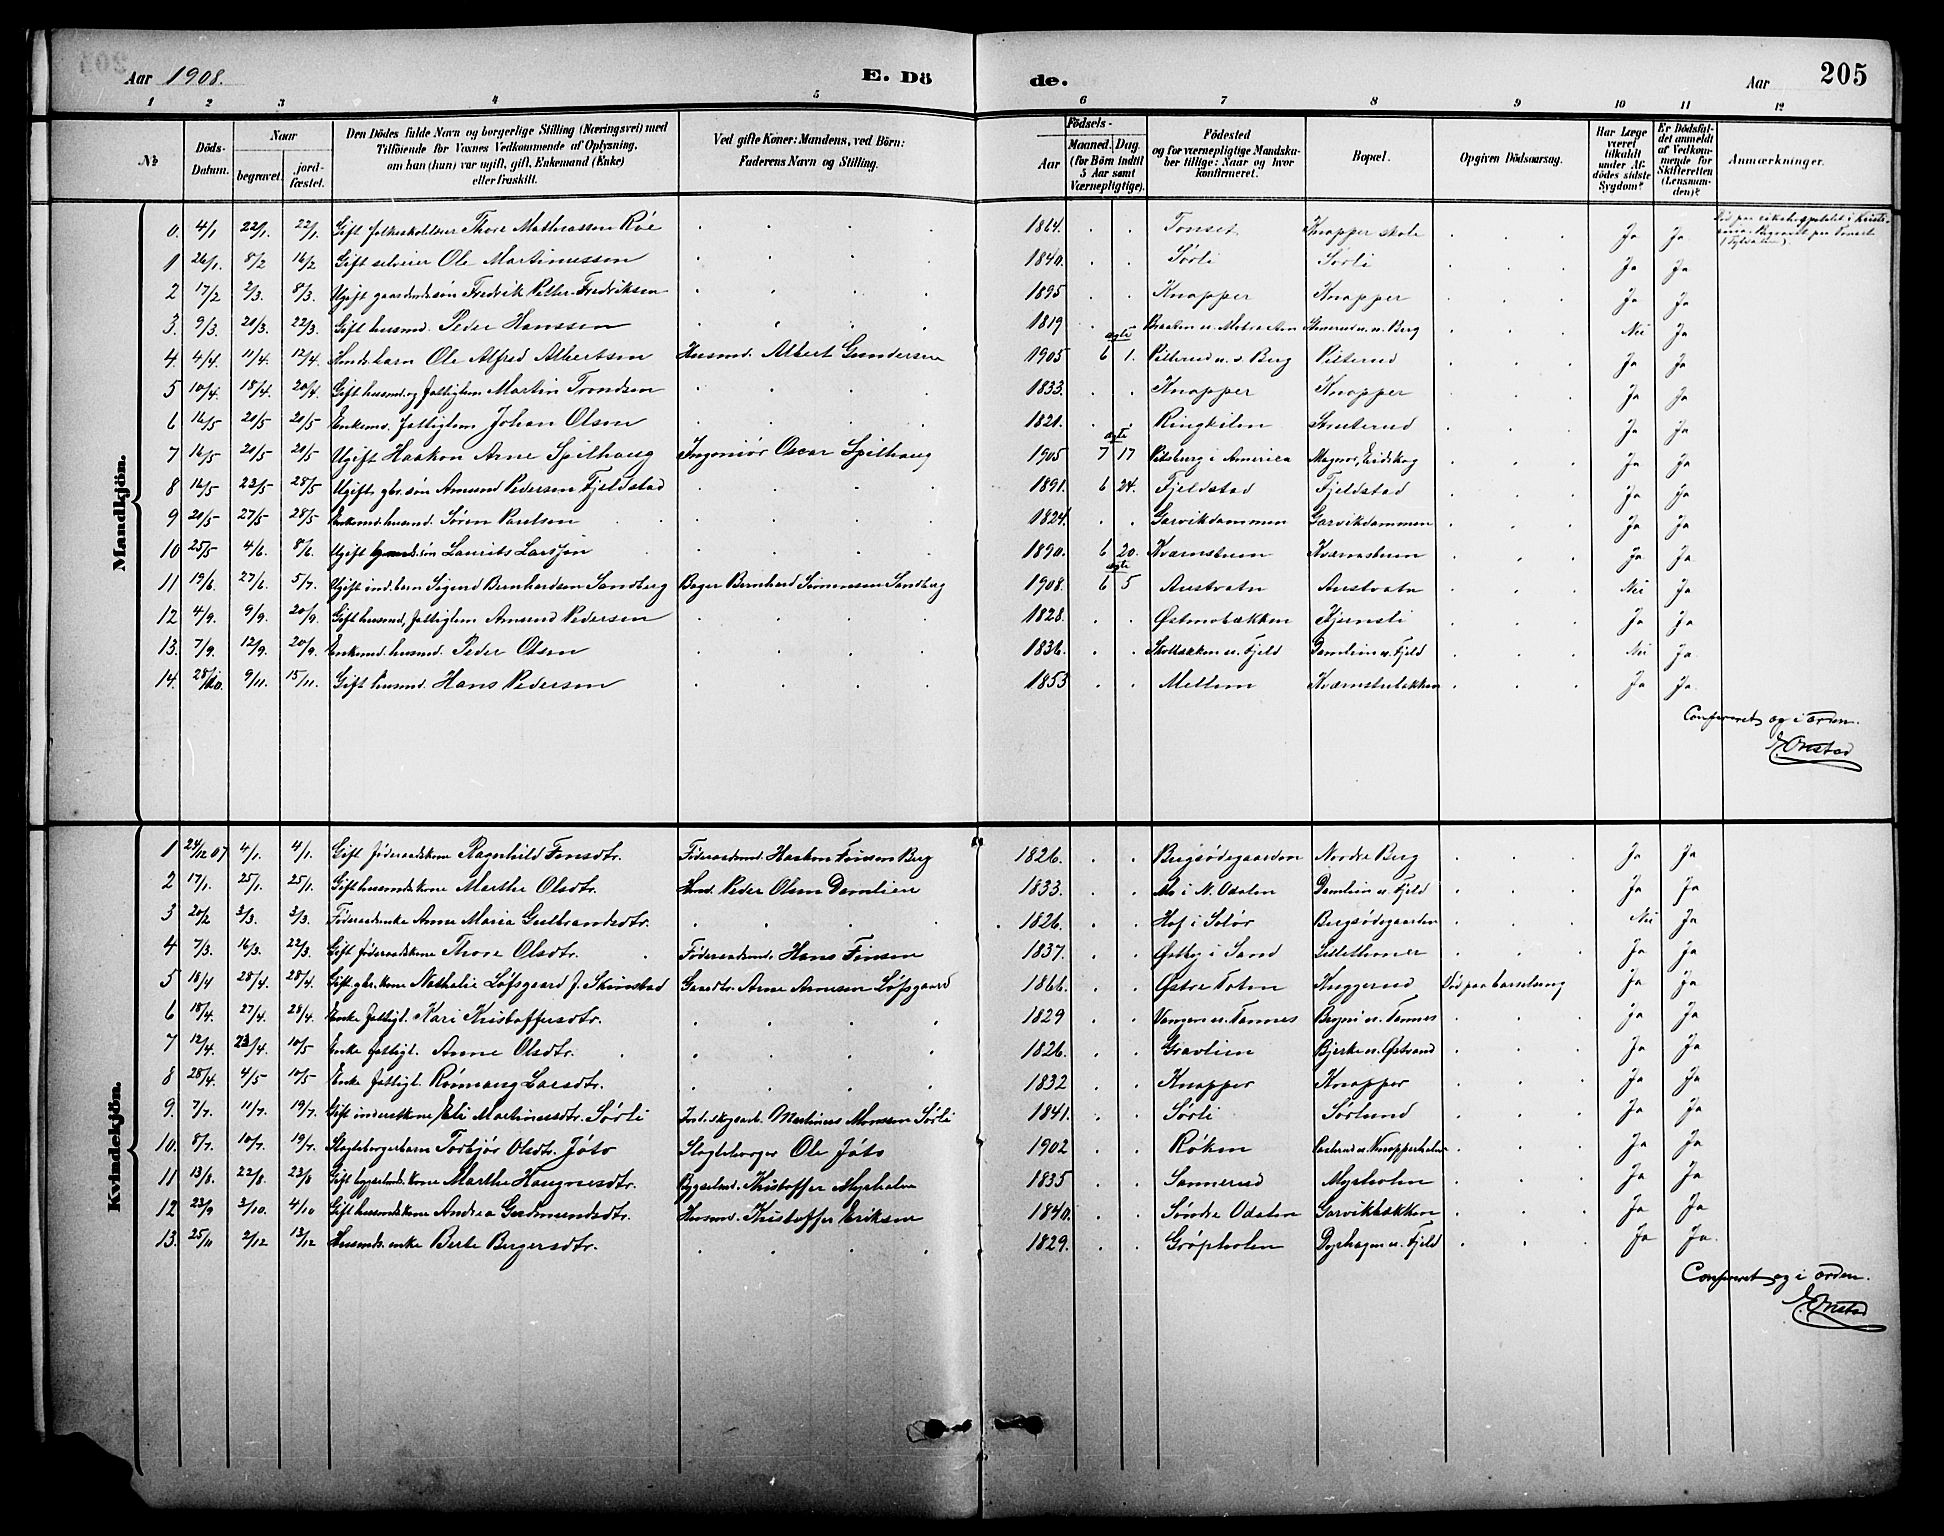 Aar 1908. E. Dö de. Aar 205
1 2 3 4 5 6 7 8 9 10 11 12
№ Döds-Datum. Naar begravet. jord-fæstet. Den Dödes fulde Navn og borgerlige Stilling (Næringsvei) med Tilföiende for Voxnes Vedkommende af Oplysning, om han (hun) var ugift, gift, Enkemand (Enke) eller fraskilt. Ved gifte Koner: Mandens, ved Börn: Faderens Navn og Stilling. Födsels- Aar Maaned. Dag. (for Börn indtil 5 Aar samt Værnepligtige). Födested og for værnepligtige Mandska-ber tillige: Naar og hvor konfirmeret. Bopæl. Opgiven Dödsaarsag. Har Læge været tilkaldt under Af-dödes sidste Sygdom? Er Dödsfal-det anmeldt af Vedkom-mende for Skifteretten (Lensman-den)? Anmærkninger.
Mandkjön.
0. 4/1 22/1. 22/1. Gift folkeskolelærer Thore Mathiassen Røe 1864. Tonset Knapper skole Ja Ja
1 26/1. 8/2 16/2 Gift selveier Ole Martinussen 1840. Sørli Sørli Ja Ja
2 17/2 2/3. 8/3. Ugift gaardmdssøn Fredrik Petter Fredriksen 1895 Knapper Knapper Ja Ja
3. 9/3. 20/3. 22/3. Gift husmd. Peder Hanssen 1819 Nei Ja
4. 4/4. 11/4. 12/4. Ole Alfred Albertsen Husmd. Albert Gundersen 1905 ægte 6 1. Pitterud u. s. Berg Pitterud Ja Ja
5 10/4. 18/4. 20/4. Gift husmd. og fattiglem Martin Trondsen 1833. Knapper Knapper Ja Ja
6 16/5 20/5 20/5 Enkemd. fattiglem Johan Olsen 1821. Ringkilen Ja Ja
7 16/5 20/5 20/5 Ugift Haakon Arne Spilhaug Ingeniör Oscar Spilhaug 1905 ægte 7 17 Pitsberg i America Magnor, Eidskog Ja Ja
8 16/5 23/5 28/5 Ugift gbr.søn Amund Pedersen Fjeldstad 1891. 6 24. Fjeldstad Fjeldstad Ja Ja
9 20/5 27/5 28/5 Enkemd. husmd. Søren Paulsen 1824. Garvikdammen Garvikdammen Ja Ja
10 25/5 4/6. 8/6. Ugift Laurits Larssen 1890. 6 20. Kværnstuen Kværnstuen Ja Ja
11 19/6 27/6. 5/7. Ugift ind. barn Sigurd Bernhardsen Sandberg Bager Bernhard Simensen Sandberg 1908. ægte 6 5 Austvatn Austvatn Nei Ja
12 4/9. 9/9. 20/9. Gift husmd, fattiglem Amund Pedersen 1828. Østmobækken Kjernsli Ja Ja
13. 7/9. 12/9. 20/9. Enkemd. husmd. Peder Olsen 1836. Damlien u. Fjeld Nei Ja
14. 28/10. 9/11. 15/11. Gift husmd. Hans Pedersen 1853 Mellem Kværnstubakken Ja Ja.
Confereret og i orden.
E. Onstad
Kvindekjön.
1 24/12 07 4/1. 4/1. Gift föderaadskone Ragnhild Finsdtr. Föderaadsmd. Haakon Finsen Berg 1826. Bergsödegaarden Nordre Berg Ja Ja
2 17/1. 25/1. 25/1. Gift husmdskone Marthe Olsdtr. Hmd. Peder Olsen Damlien 1833. Mo i N. Odalen Damlien u. Fjeld Ja Ja
3 20/2 3/3. 3/3. Föderaadsenke Anne Maria Gulbrandsdtr. 1826. Hof i Solør Bergsödegaarden Nei Ja
4 7/3. 16/3. 22/3. Gift föderaadskone Thore Olsdtr. Föderaadsmd. Hans Finsen 1837. Østby i Sand Ja Ja
5 18/4 28/4. 28/4. Gift gbr.kone Nathalie Løfsgaard f. Skinstad Gaardbr. Arne Arnesen Løfsgaard 1866. Østre Toten Kuggerud Död paa barselseng Ja Ja
6 18/4. 27/4. 28/4. Enke fattigl. Kari Kristoffersdtr. 1829 Vangen u. Tannes u. Tannes Ja Ja
7 12/4. 23/4. 10/5 Enke fattigl. Anne Olsdtr. 1826. Gravlien Bjerke u. Østrand Ja Ja
8 28/4. 4/5 10/5 Enke fattigl. Rönnaug Larsdtr. 1832 Knapper Knapper Ja Ja
9. 7/7. 11/7. 19/7. Gift inderstkone Eli Martinusdtr. Sørli Ind. skogsarb. Martinus Monssen Sørli 1841. Sørli Sørlund Ja Ja
10. 8/7. 10/7. 19/7. Torbjør Olsdtr. Jöto Ole Jöto 1902 Røken Ja Ja
11 13/8. 22/8. 23/8 Gift bygselmds.kone Marthe Haagensdtr. Bygselmd. Kristoffer Myrholen 1835 Sannerud Myrholen Ja Ja
12 23/9 3/10. 4/10 Gift husmdskone Andrea Gudmundsdtr. Husmd. Kristoffer Eriksen 1840. Søndre Odalen Garvikbakken Ja Ja
13. 25/11 2/12 13/12 Husmds. enke Berte Bergersdtr. 1829. Gröpholen u. Fjeld Ja Ja.
Confereret og i orden.
E. Onstad